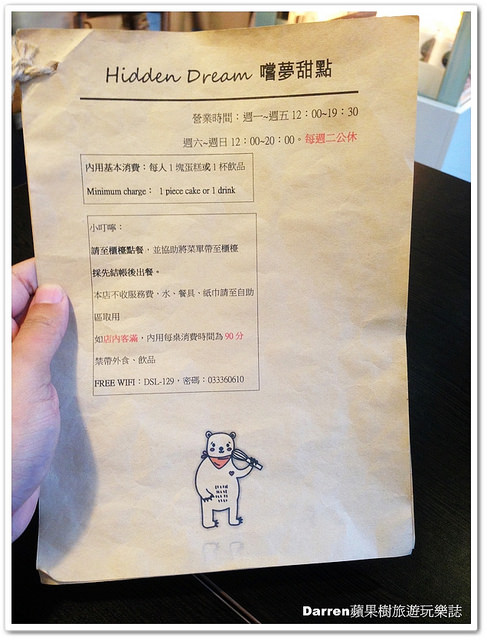 Hidden Dream 嚐夢甜點
營業時間：週一~週五 12：00~19：30
週六~週日 12：00~20：00。每週二公休
內用基本消費：每人 1 塊蛋糕或 1 杯飲品
Minimum charge： 1 piece cake or 1 drink
小叮嚀：
請至櫃檯點餐，並協助將菜單帶至櫃檯
採先結帳後出餐。
本店不收服務費，水、餐具、紙巾請至自助
區取用
如店內客滿，內用每桌消費時間為 90 分
禁帶外食、飲品
FREE WIFI：DSL-129，密碼：033360610
Darren蘋果樹旅遊玩樂誌